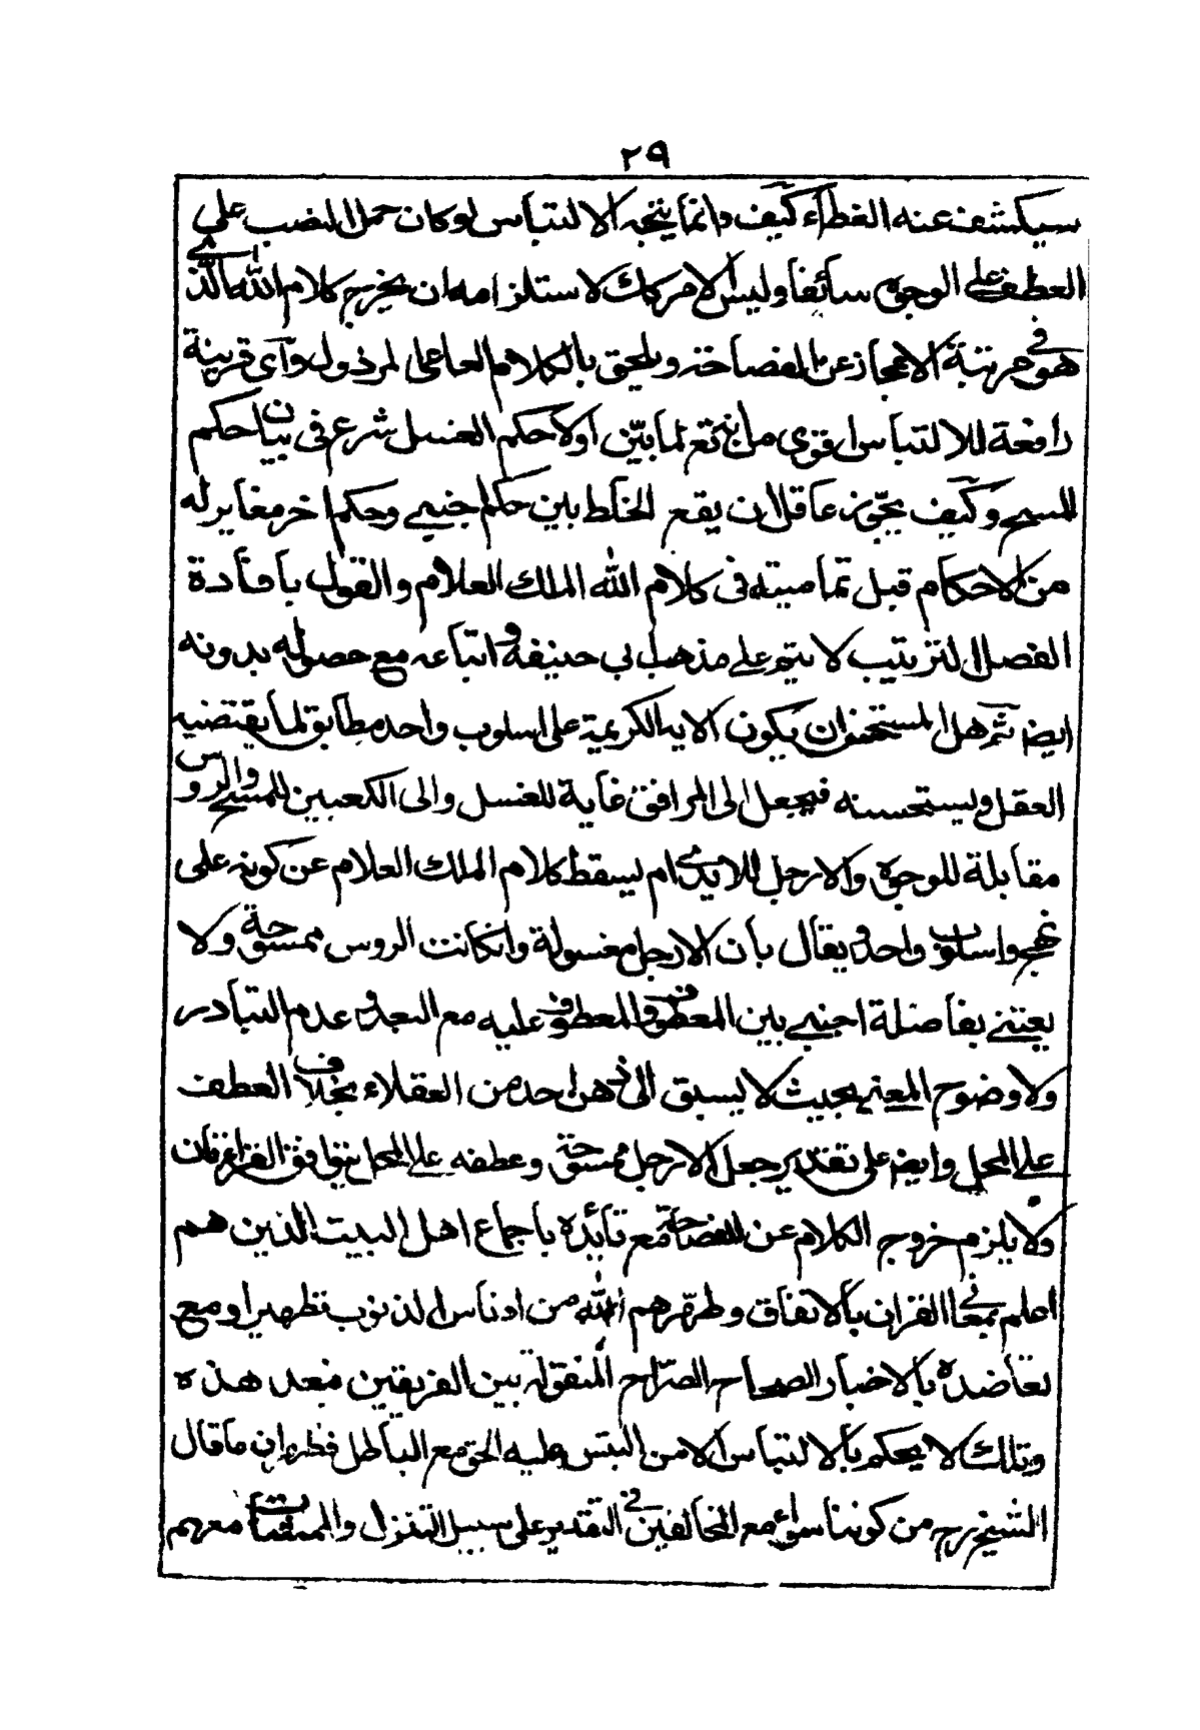 ٢٩
سيكشف عنه الغطاء كيف وانما يتجه الالتباس لو كان حمل النصب على
العطف على الوجوه سائغا وليس الامر كك لاستلزامه ان يخرج كلام الله الذي
هو في مرتبة الاعجاز عن الفصاحة ويلحق بالكلام العامى المرذول واى قرينة
رافعة للالتباس اقوى من انه تع لما بيّن اولا حكم الغسل شرع فى بيان حكم
المسح وكيف يجوّز عاقل ان يقع الخلط بين حكم اجنبي وحكم اخر مغاير له
من الاحكام قبل تماميته فى كلام الله الملك العلام والقول بافادة
الفصل الترتيب لا يتم على مذهب ابى حنيفة واتباعه مع حصوله بدونه
ايضا ثم هل المستحسن ان يكون الاية الكريمة على اسلوب واحد مطابق لما يقتضيه
العقل ويستحسنه فيجعل الى المرافق غاية للغسل والى الكعبين للمسح والروس
مقابلة للوجوه والارجل للايدى ام يسقط كلام الملك العلام عن كونه على
نهج واسلوب واحد ويقال بان الارجل مغسولة وانكانت الروس ممسوحة ولا
يعتنى بفاصلة اجنبي بين المعطوف والمعطوف عليه مع البعد وعدم التبادر
ولا وضوح المعنى بحيث لا يسبق الى ذهن احد من العقلاء بخلاف العطف
على المحل وايضا على تقدير جعل الارجل ممسوحة وعطفه على المحل يتوافق القراءتان
ولا يلزم خروج الكلام عن الفصاحة مع تائده باجماع اهل البيت الذين هم
اعلم بمعانى القران بالاتفاق وطهّرهم الله من ادناس الذنوب تطهيرا ومع
تعاضده بالاخبار الصحاح الصراح المنقولة بين الفريقين فبعد هذه
وتلك لا يحكم بالالتباس الا من التبس عليه الحق مع الباطل فظهر ان ما قال
الشيخ رح من كوننا سواء مع المخالفين فى التقدير على سبيل التنزل والممشات معهم